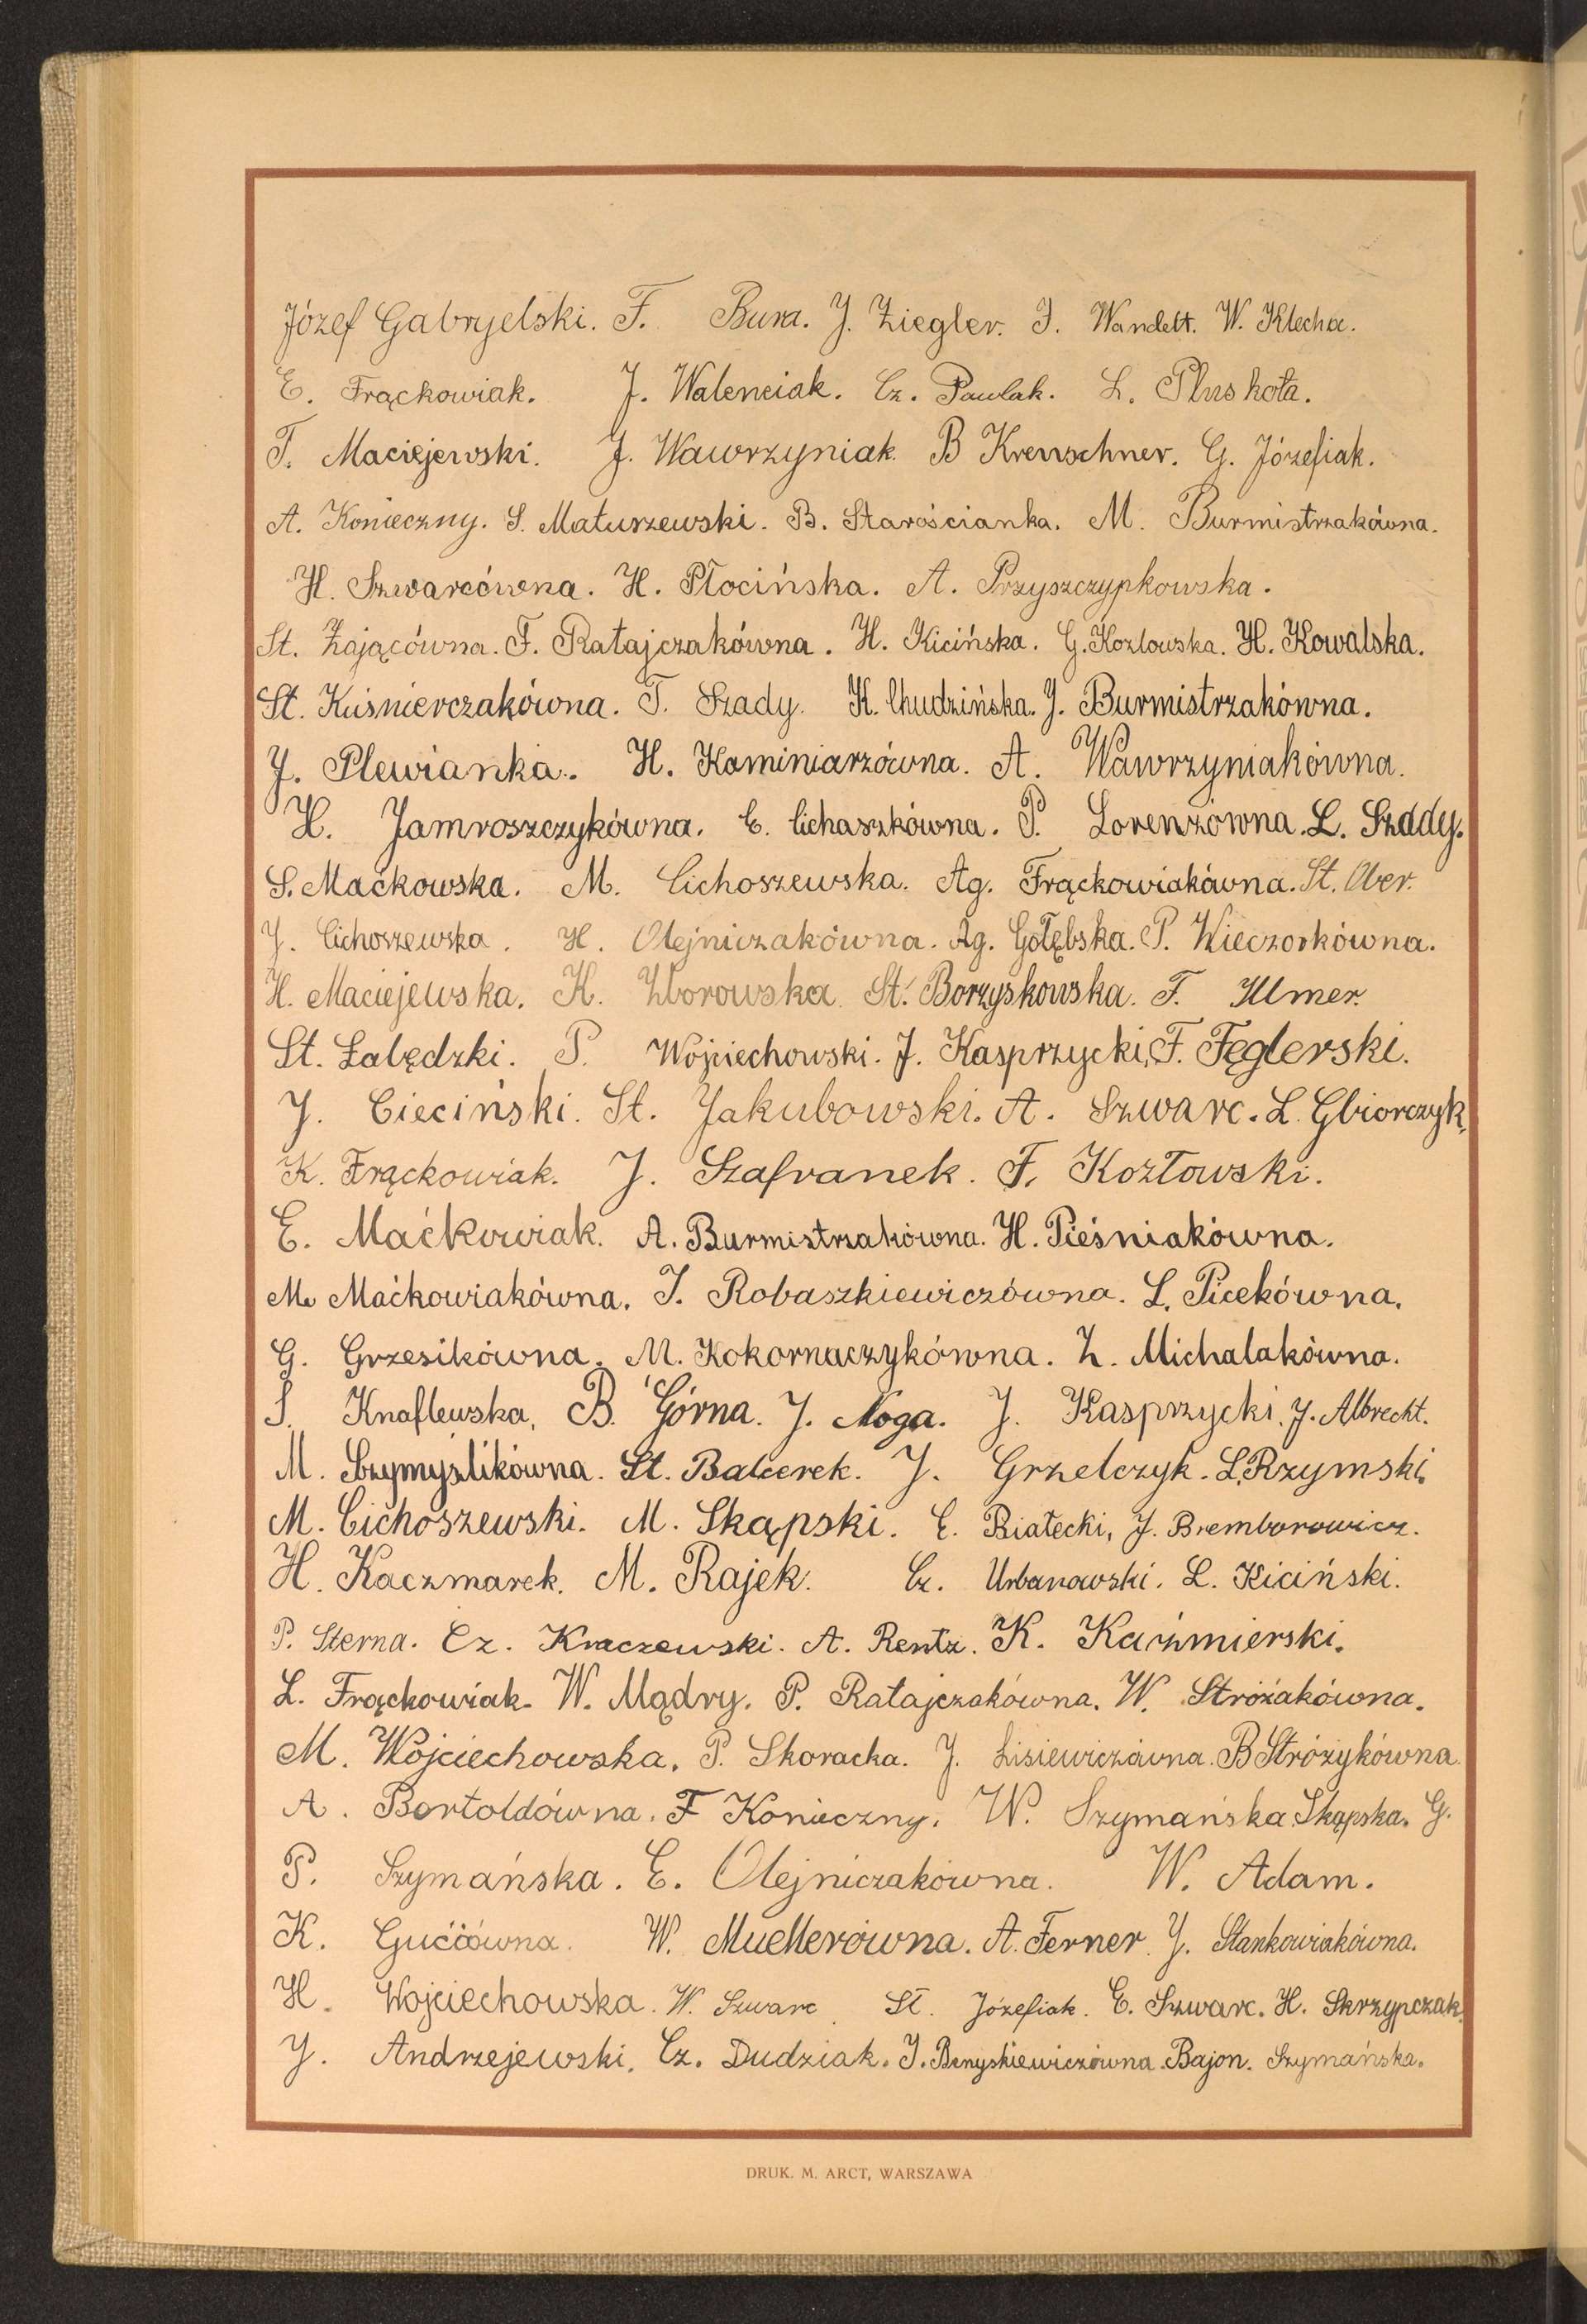 Józef Gabryelski. F. Bura. J. Ziegler. I. Wandelt. W. Klecha.
E. Frąckowiak. J. Walenciak. Cz. Pawlak. L. Pluskota.
T. Maciejewski. J. Wawrzyniak. B Kreuschner. G. Józefiak.
A. Konieczny. S. Matuszewski. B. Starościanka. M. Burmistrzakówna.
H. Szwarcówna. H. Płocińska. A. Przyszczypkowska.
St. Zającówna. F. Ratajczakówna. H. Kicińska. G. Kozlowska. H. Kowalska.
St. Kuśnierczakówna. T. Szady. K. Chudzińska. J. Burmistrzakówna.
J. Plewianka. H. Kaminiarzówna. A. Wawrzyniakówna.
H. Jamroszczykówna. C. Cichaszkówna. P. Lorenzówna. L. Szady.
S. Maćkowska. M. Cichoszewska. Ag. Frąckowiakówna. St. Ober.
J. Cichoszewska. H. Olejniczakówna. Ag. Gołębska. P. Wieczorkówna.
H. Maciejewska. K. Zborowska. St. Borzyskowska. F. Ulmer.
St. Łabędzki. P. Wojciechowski. J. Kasprzycki. F. Feglerski.
J. Cieciński. St. Jakubowski. A. Szwarc. L. Gbiorczyk.
K. Frąckowiak. J. Szafranek. F. Kozłowski.
E. Maćkowiak. A. Burmistrzakówna. H. Pieśniakówna.
M. Maćkowiakówna. I. Robaszkiewiczówna. L. Picekówna.
G. Grzesikówna. M. Kokornaczykówna. Z. Michalakówna.
S. Knaflewska. B. Górna. J. Noga. J. Kasprzycki. J. Albrecht.
M. Szymyślikówna. St. Balcerek. J. Grzelczyk. L. Rzymski.
M. Cichoszewski. M. Skąpski. E. Białecki, J. Bremborowicz.
H. Kaczmarek. M. Rajek. Cz. Urbanowski. L. Kiciński.
P. Sterna. Cz. Kraczewski. A. Rentz. K. Kaźmierski.
L. Frąckowiak. W. Mądry. P. Ratajczakówna. W. Stróżakówna.
M. Wojciechowska. P. Skoracka. J. Lisiewiczówna. B Stróżykówna.
A. Bartoldówna. F Konieczny. W. Szymańska. Skąpska. G.
P. Szymańska. E. Olejniczakówna. W. Adam.
K. Gucióówna. W. Muellerówna. A. Ferner. J. Stankowiakówna.
H. Wojciechowska. W. Szwarc. St. Józefiak. E. Szwarc. H. Skrzypczak.
J. Andrzejewski. Cz. Dudziak. I. Benyskiewiczówna. Bajon. Szymańska.
DRUK. M. ARCT, WARSZAWA